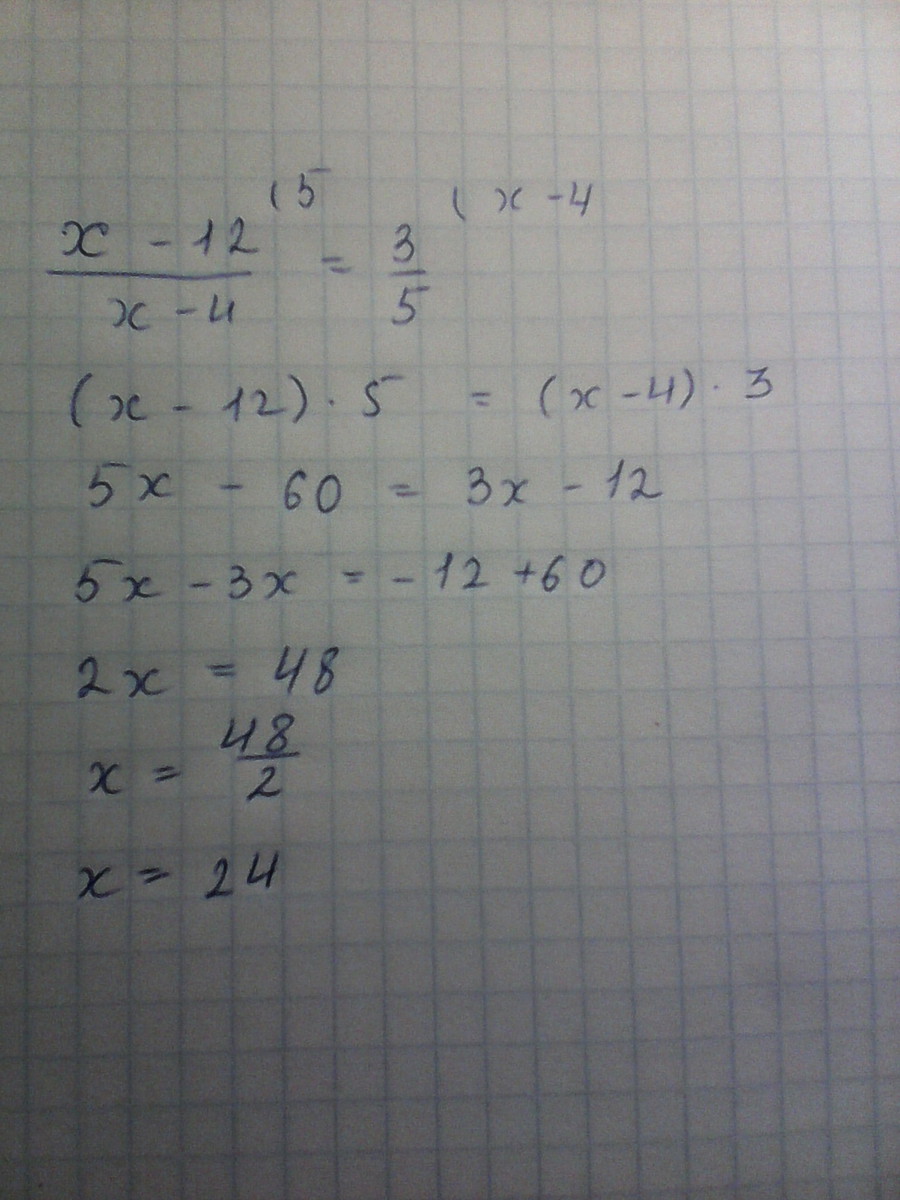 (5 ( x - 4
x - 12 / x - 4 = 3 / 5
(x - 12) · 5 = (x - 4) · 3
5x - 60 = 3x - 12
5x - 3x = - 12 + 60
2x = 48
x = 48 / 2
x = 24